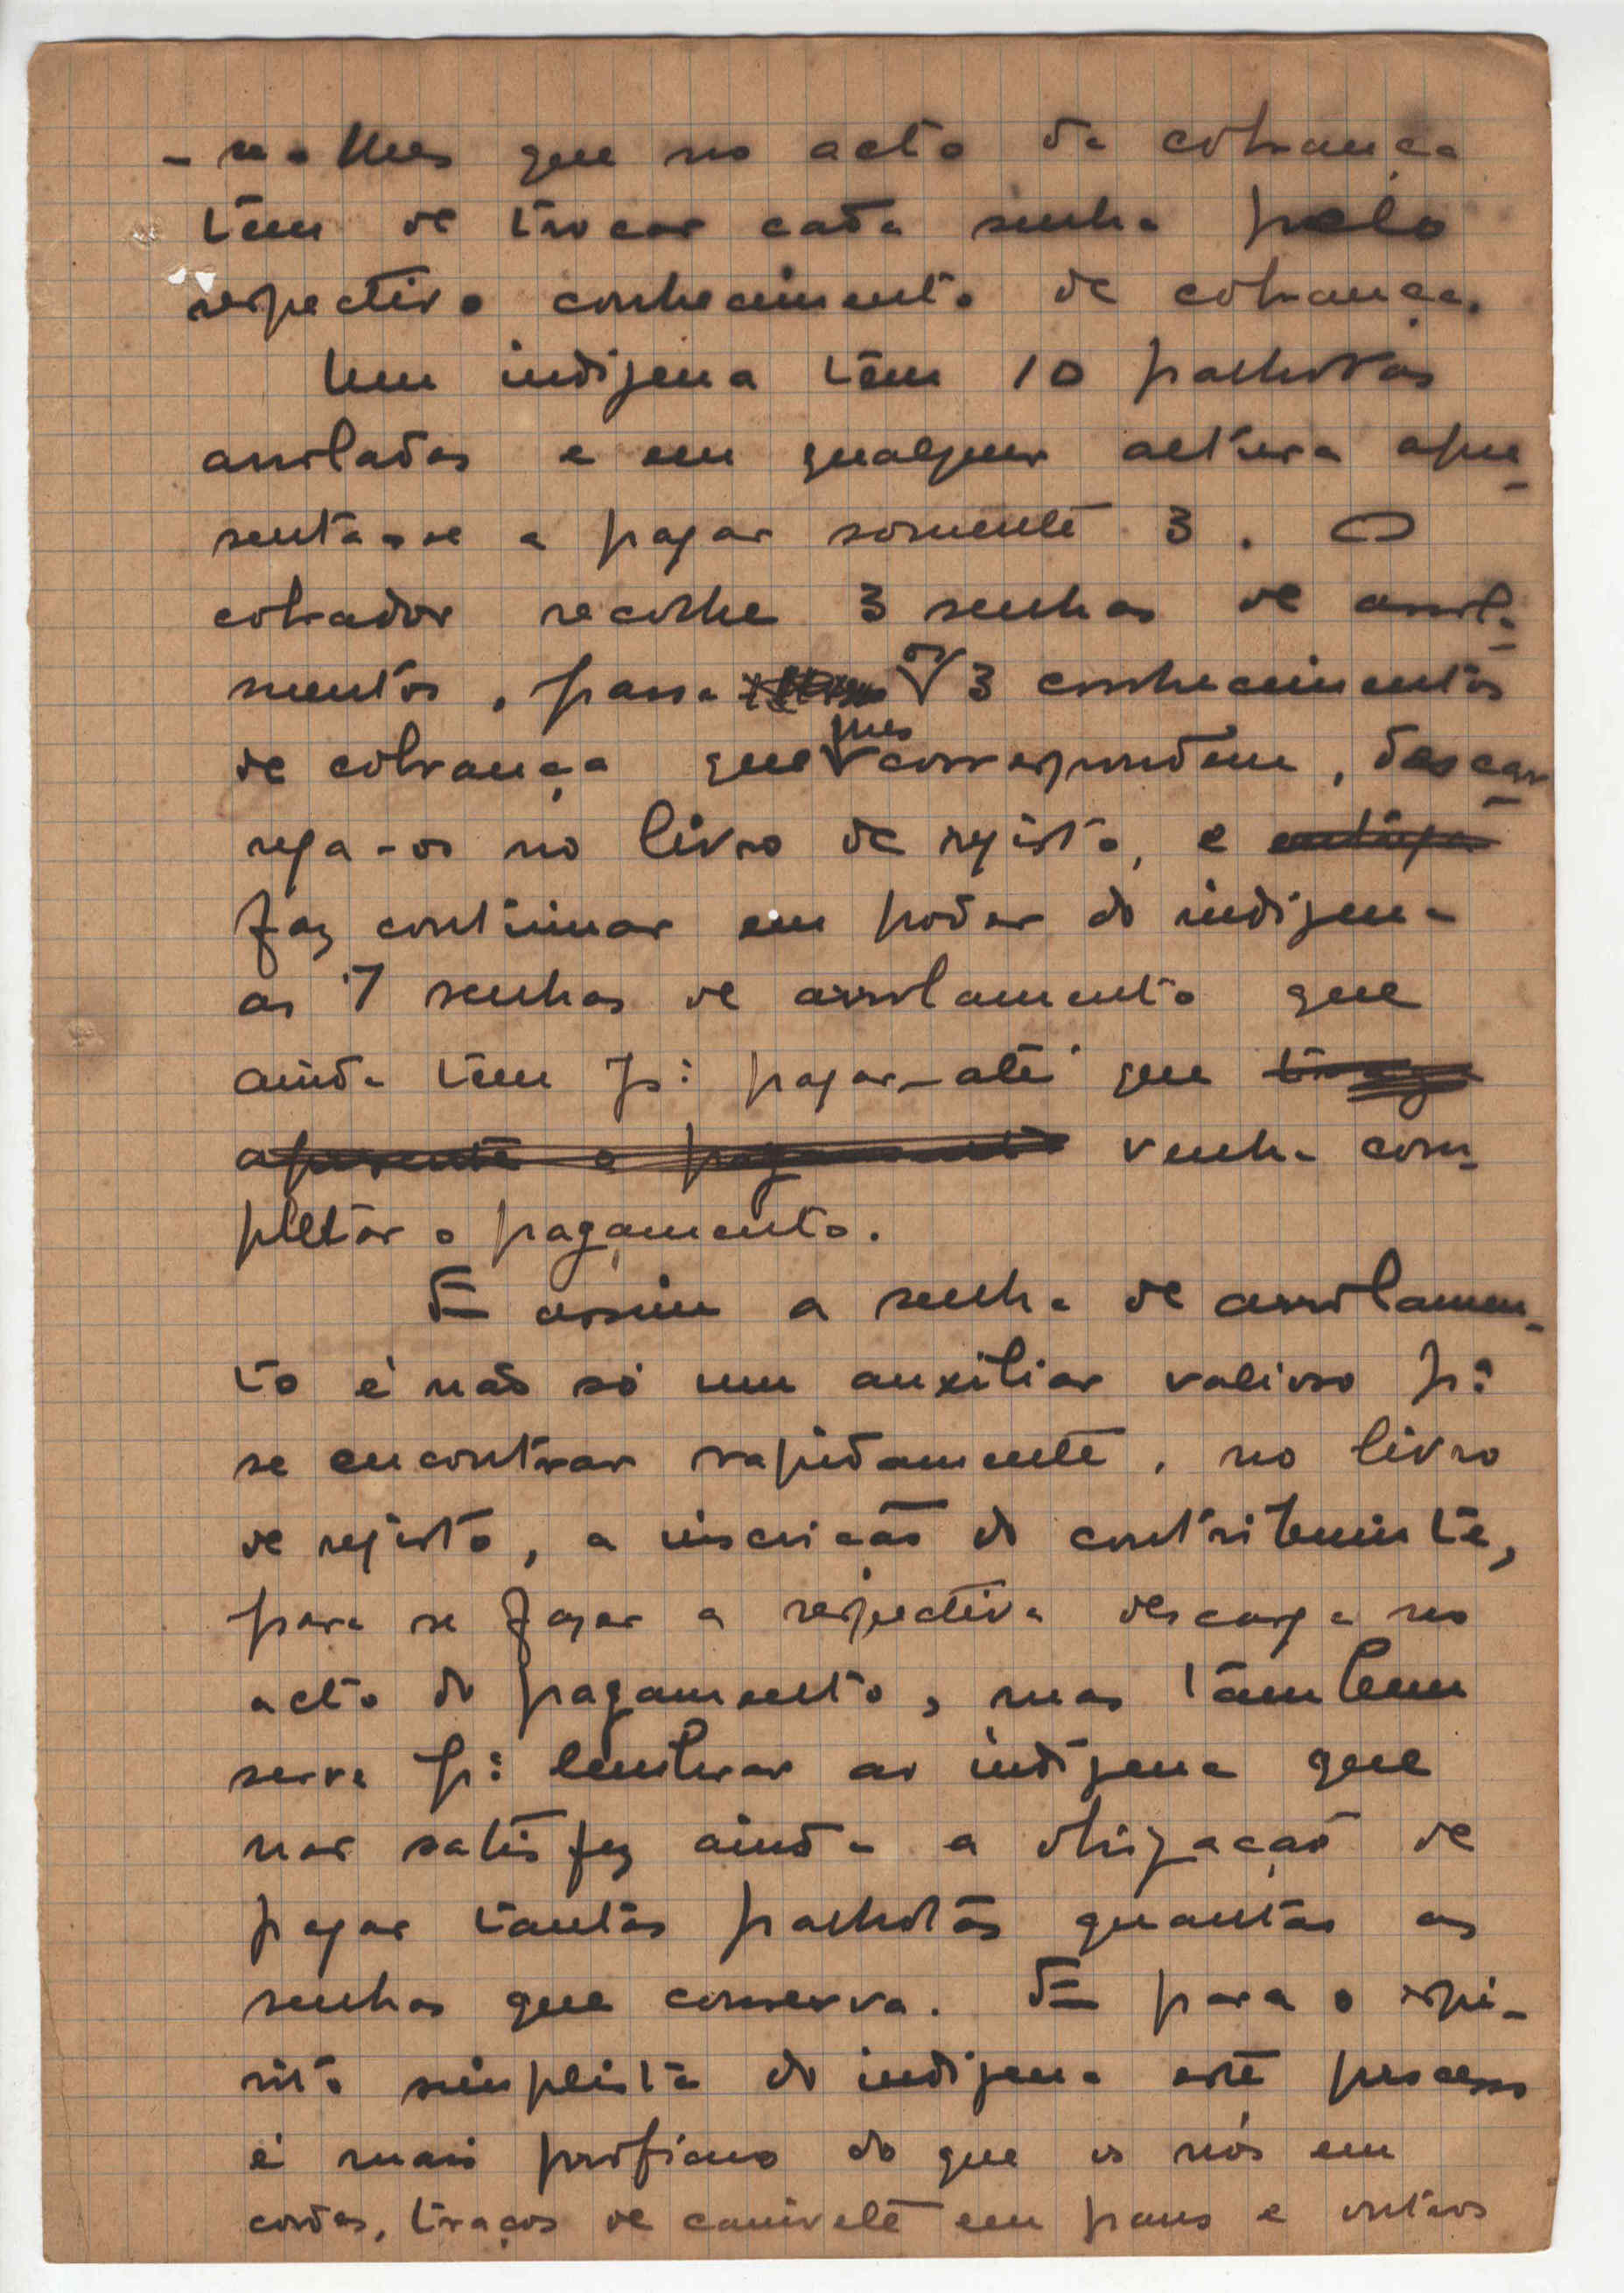 -se-lhes que no acto da cobrança
têm de trocar cada senha pelo
respectivo conhecimento de cobrança.
Um indígena têm 10 palhotas
arroladas e em qualquer altura apre-
senta-se a pagar somente 3. O
cobrador recolhe 3 senhas de arrola-
mentos, passa os 3 conhecimentos
de cobrança que lhes correspondem, descar-
rega-os no livro de registo, e entrega
faz continuar em poder do indigena
as 7 senhas de arrolamento que
ainda tem pª pagar-até que traga
apresente o pagamento venha com-
pletar o pagamento.
E assim a senha de arrolamen-
to é não só um auxiliar valioso pª
se encontrar rapidamente, no livro
de registo, a inscrição do contribuinte,
para se fazer a respectiva descarga no
acto do pagamento, mas tambem
serve pª lembrar ao indígena que
nao satisfez ainda a obrigação de
pagar tantas palhotas quantas as
senhas que conserva. E para o espi-
rito simplista do indigena este processo
é mais proficuo do que os nós em
cordas, traços de canivete em paus e outros